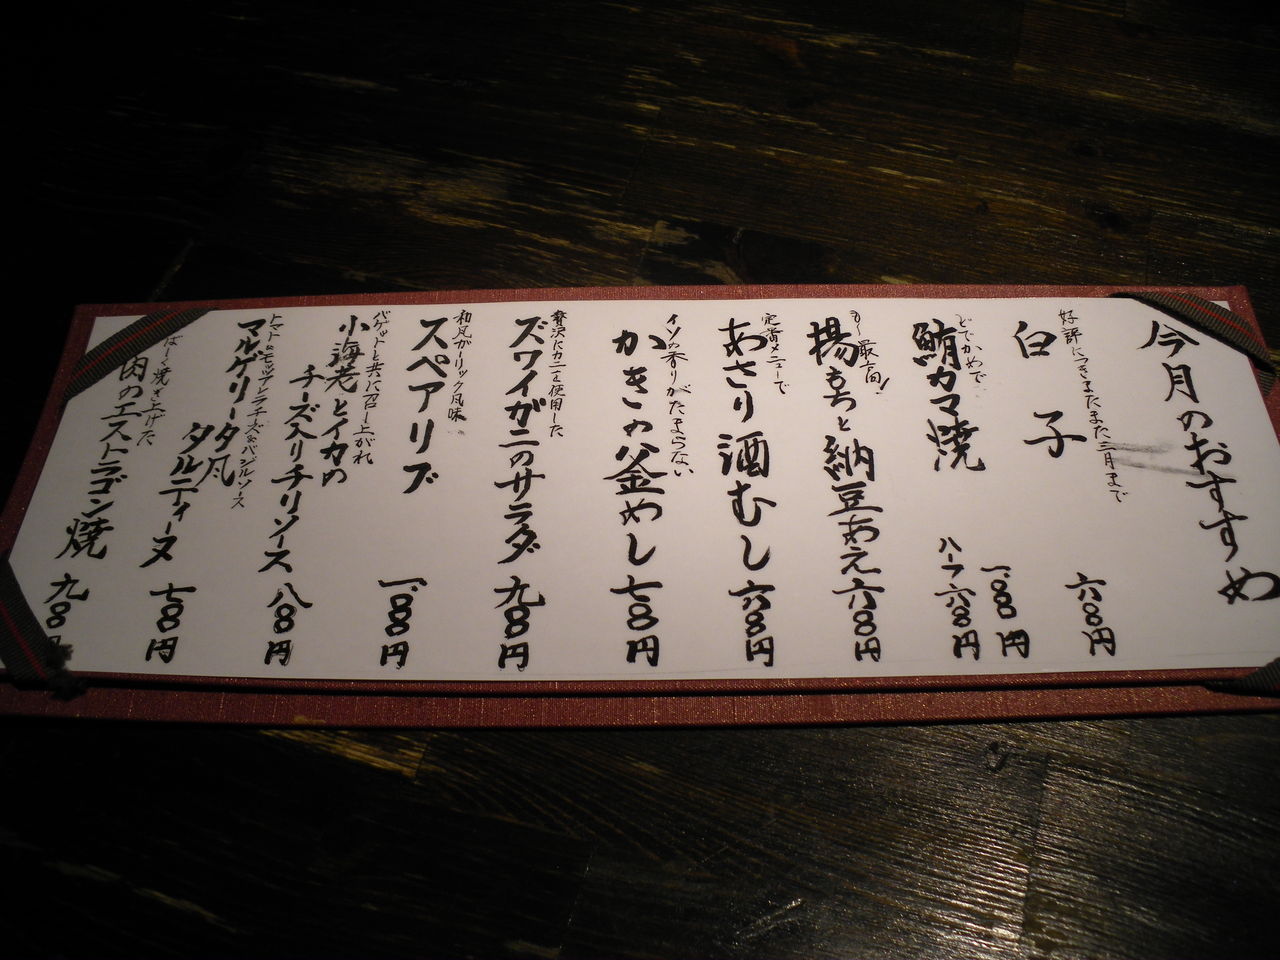 今月のおすすめ
好評につきまたまた三月まで
白子 六〇〇円
どでかめで
鮪カマ焼 一、〇〇〇円
ハーフ 六〇〇円
も〜最高!
揚もちと納豆あえ 六〇〇円
定番メニューで
あさり酒むし 六〇〇円
イソの香りがたまらない
かきの釜めし 七〇〇円
贅沢にカニを使用した
ズワイガニのサラダ 九〇〇円
和風ガーリック風味
スペアリブ 一、〇〇〇円
バゲットと共に召し上がれ
小海老とイカの
チーズ入りチリソース 八〇〇円
トマト&モッツアレラチーズ&バジルソース
マルゲリータ風
タルティーヌ 七〇〇円
焼き上げた
肉のエストラゴン焼 九〇〇円